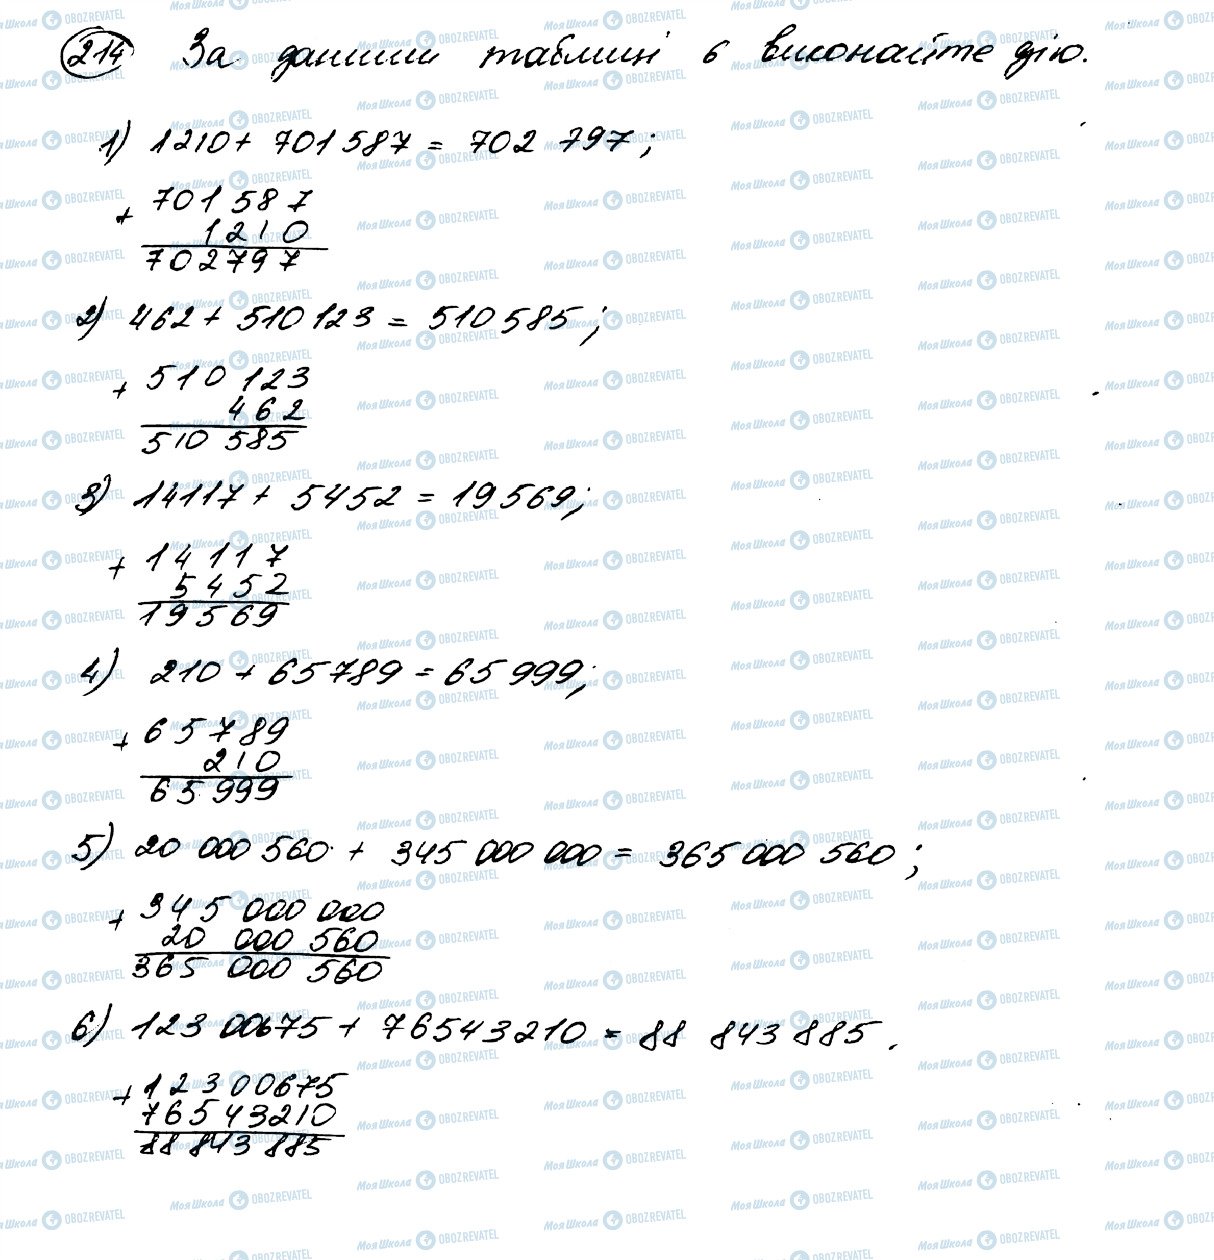 214 За даними таблиці 6 виконайте дію.
1) 1210 + 701 587 = 702 797;
+ 701 587
1210
702797
2) 462 + 510 123 = 510 585;
+ 510 123
462
510 585
3) 14117 + 5452 = 19569;
+ 14 117
5452
19569
4) 210 + 65789 = 65 999;
+ 65789
210
65999
5) 20 000 560 + 345 000 000 = 365 000 560;
+ 345 000 000
20 000 560
365 000 560
6) 123 00675 + 76543210 = 88 843 885.
+ 12300675
76543210
88 843 885